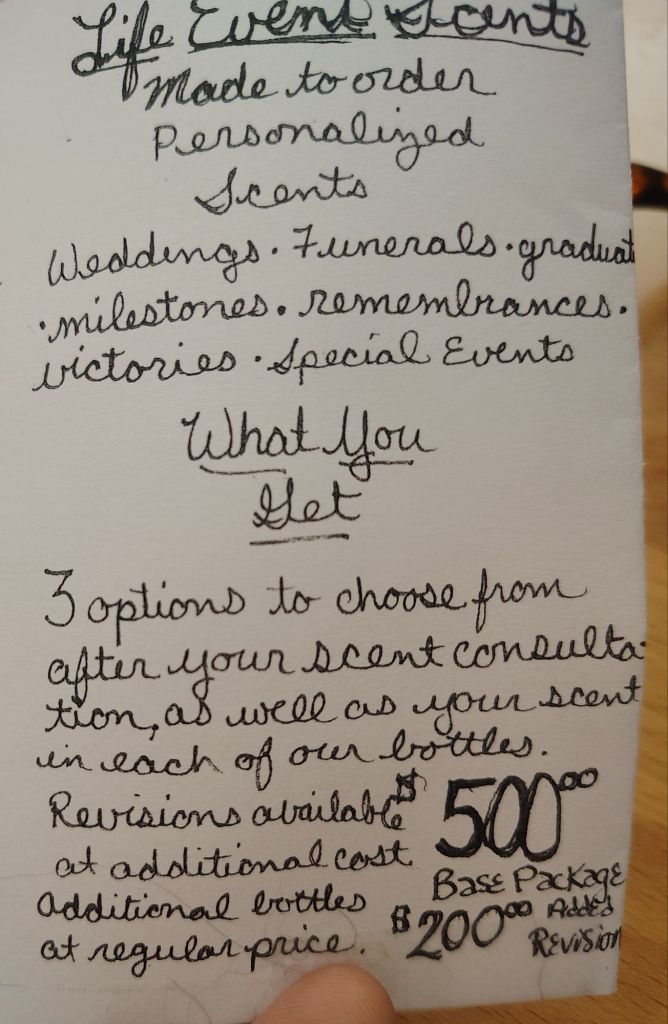 Life Event Scents
Made to order
Personalized
Scents
Weddings · Funerals · graduat
· milestones · remembrances ·
victories · Special Events
What You
Get
3 options to choose from
after your scent consulta-
tion, as well as your scent
in each of our bottles.
Revisions available
at additional cost
Additional bottles
at regular price.
$500⁰⁰
Base Package
$200⁰⁰ Added
Revision